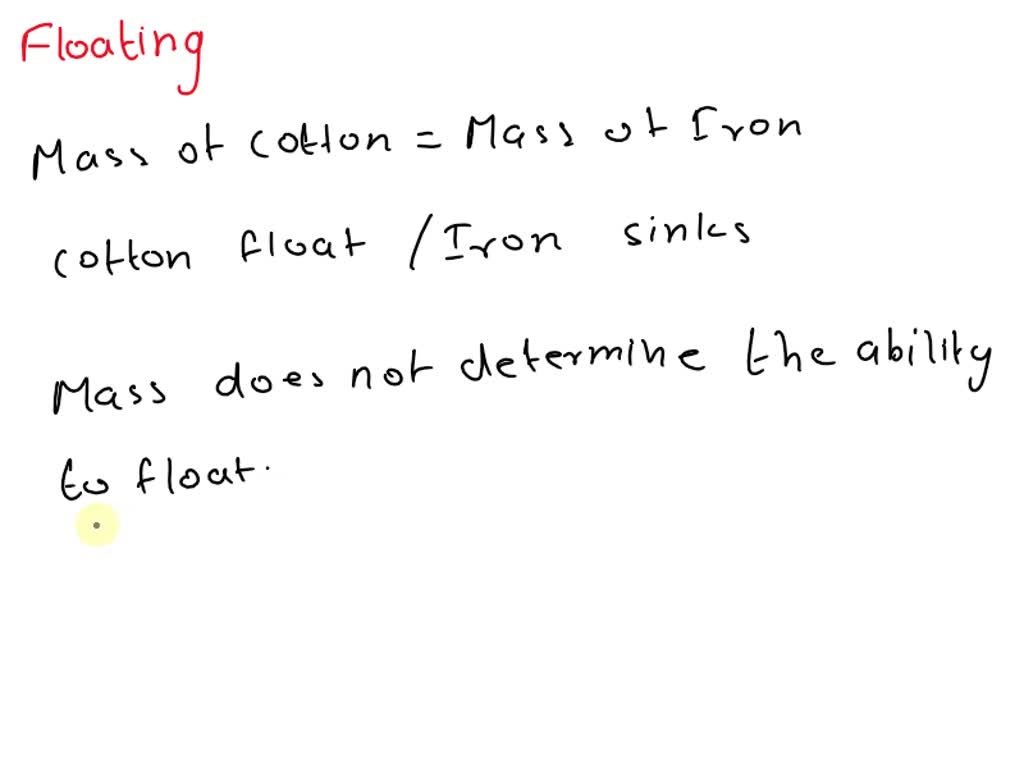 Floating
Mass of cotton = Mass of Iron
cotton float / Iron sinks
Mass does not determine the ability
to float.